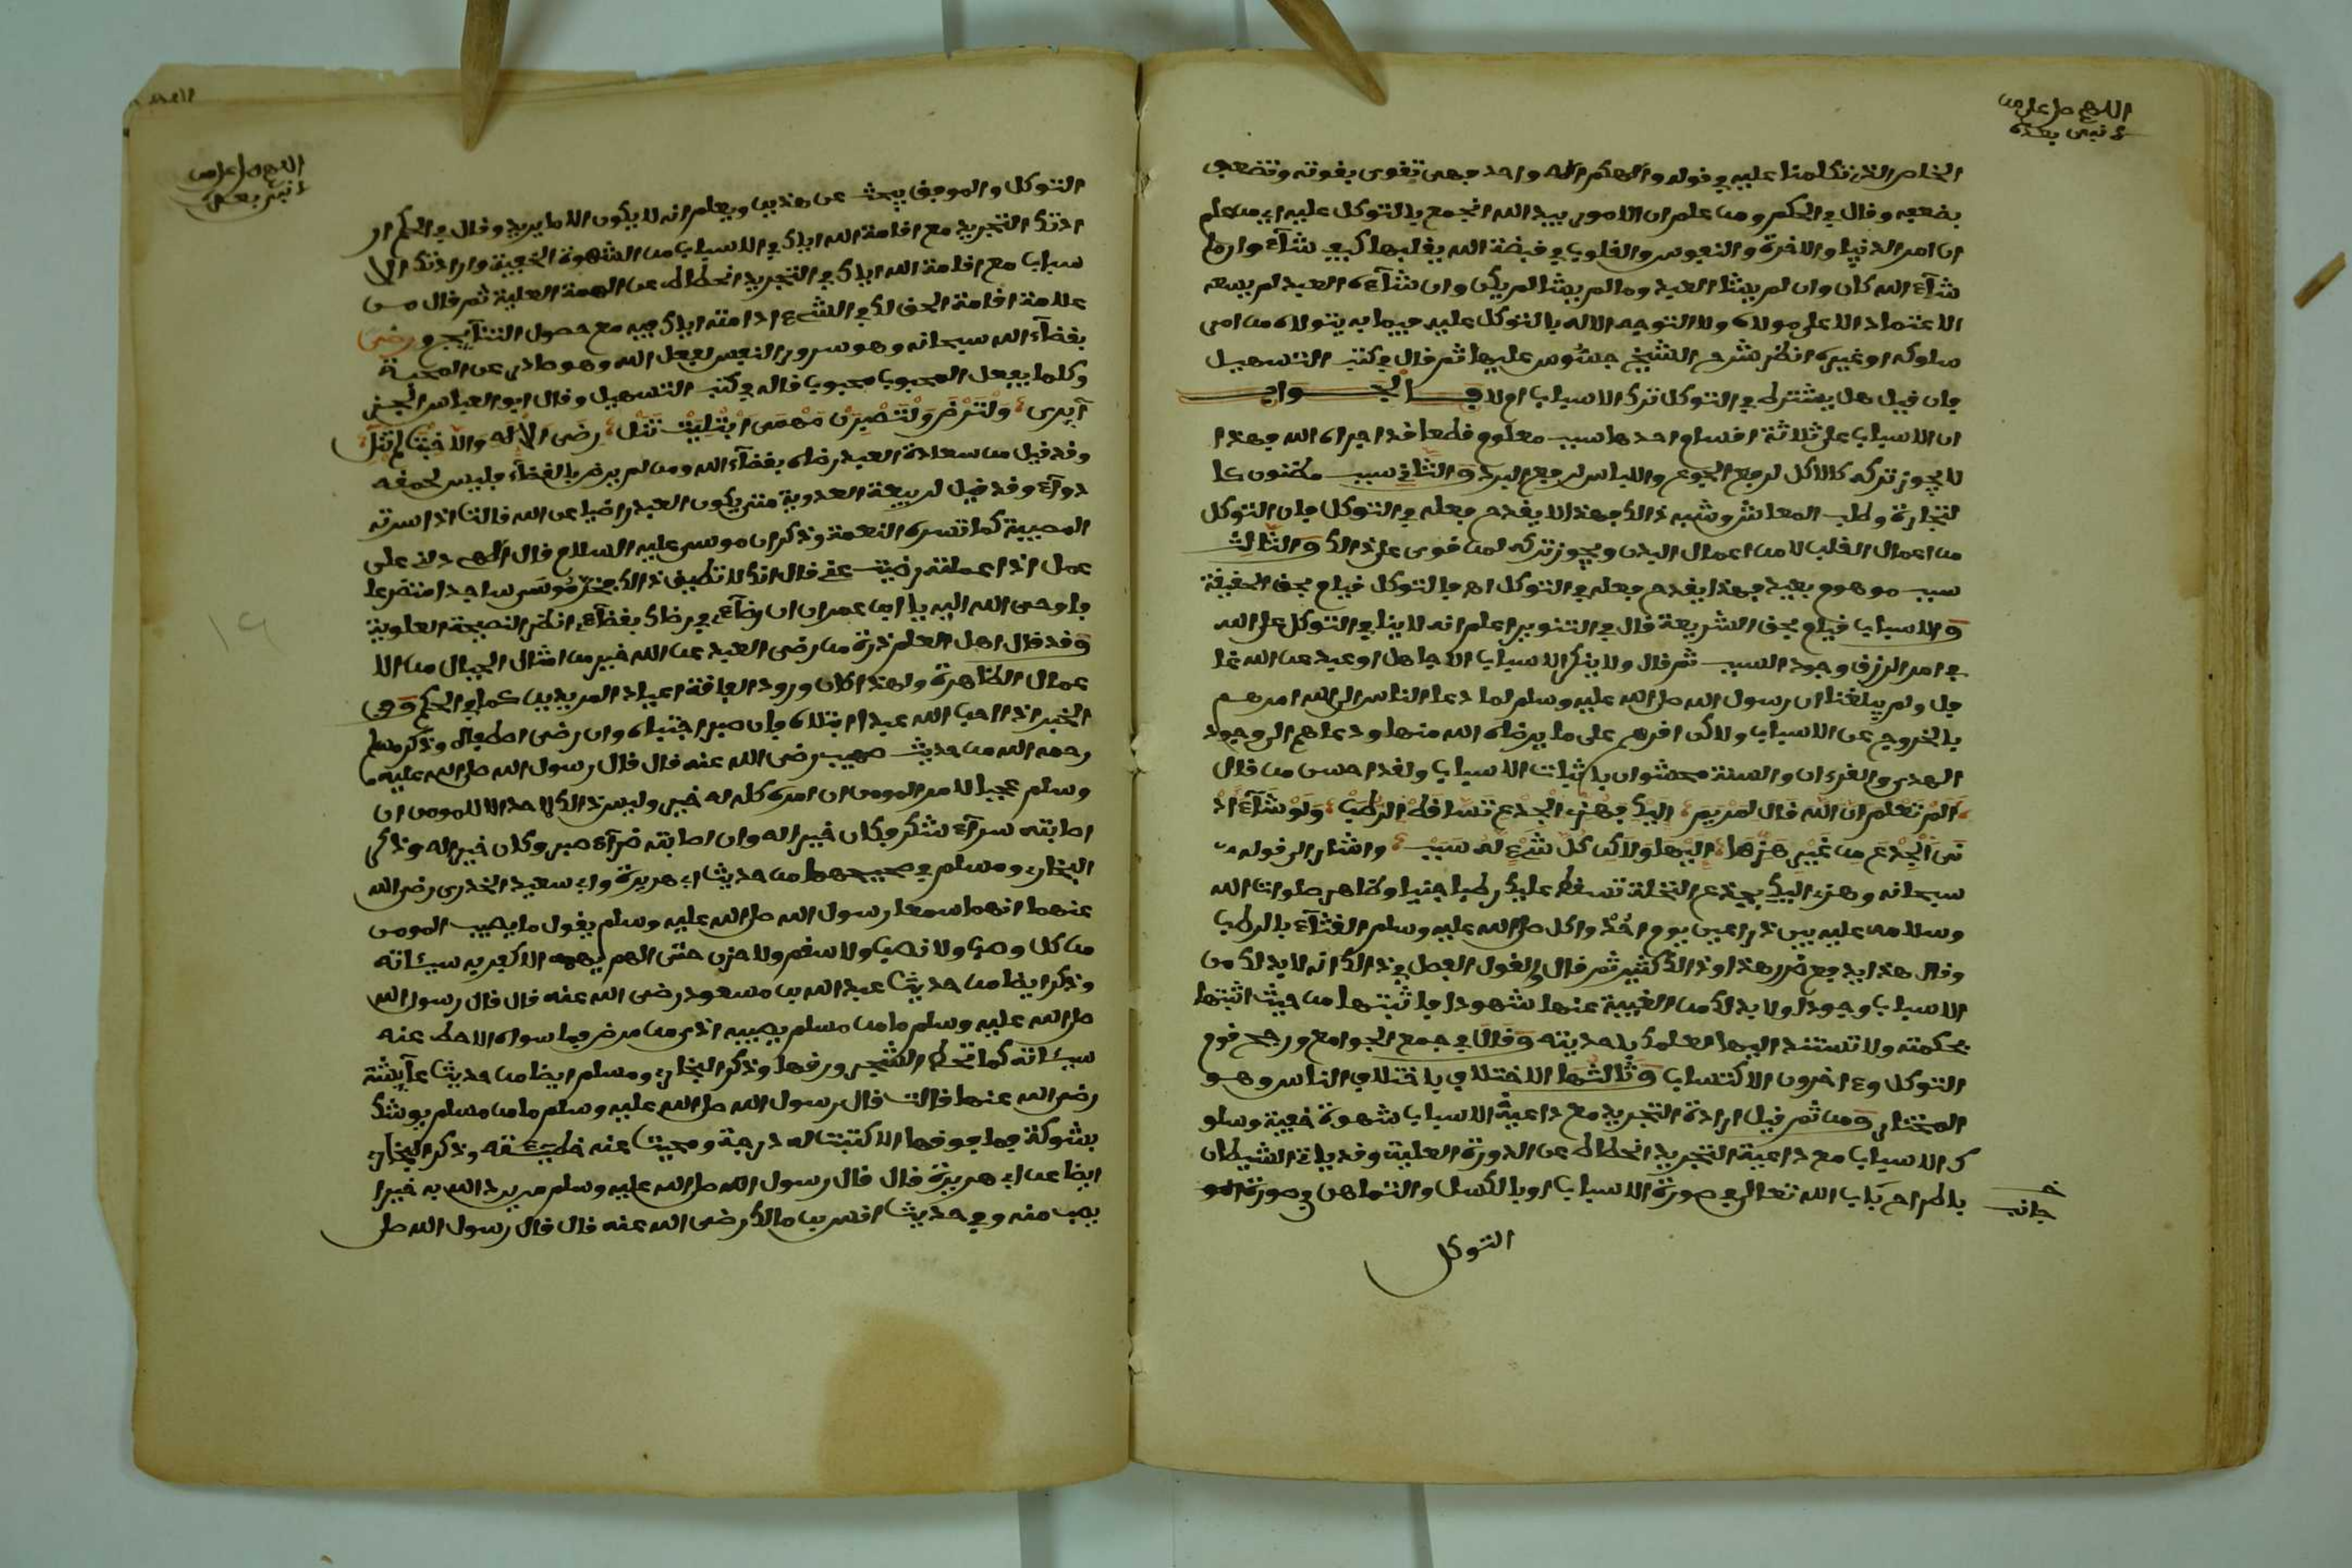 اللهم صل على من
لا نبي بعده
الخاص الذي تكلمنا عليه في قوله وإلهكم إله واحد فهي تقوى بقوته وتضعف
بضعفه وقال في الحكم ومن علم ان الامور بيد الله انجمع بالتوكل عليه اي من علم
ان امر الدنيا والاخرة والنفوس والقلوب في قبضة الله يقلبها كيف شآء وان ما
شآء الله كان وان لم يشا العبد وما لم يشا لم يكن وان شآءه العبد لم يسعه
الاعتماد الا على مولاه ولا التوجه الا له بالتوكل عليه فيما به يتولاه من امر
سلوكه او غيره انظر شرح الشيخ جسوس عليها ثم قال في كتب التسهيل
فان قيل هل يشترط في التوكل ترك الاسباب ام لا فالجواب
ان الاسباب على ثلاثة اقسام احدها سبب معلوم قطعا قد اجراه الله فهذا
لا يجوز تركه كالاكل لرفع الجوع واللباس لرفع البرد والثاني سبب مظنون كا
لتجارة وطلب المعاش وشبه ذالك فهذا لا يقدح فعله في التوكل فان التوكل
من اعمال القلب لا من اعمال البدن ويجوز تركه لمن قوى على ذالك والثالث
سبب موهوم بعيد فهذا يقدح فعله في التوكل اهـ فالتوكل قيام بحق الحقيقة
والاسباب قيام بحق الشريعة قال في التنوير اعلم انه لا ينافي التوكل على الله
في امر الرزق وجود السبب ثم قال ولا ينكر الاسباب الا جاهل او عبد عن الله غا
فل ولم يبلغنا ان رسول الله صلى الله عليه وسلم لما دعا الناس الى الله امرهم
بالخروج عن الاسباب ولاكن اقرهم على ما يرضاه الله منها ودعاهم الى وجود
الهدى والقرءان والسنة محشوان باثبات الاسباب ولقد احسن من قال
ألم تعلم ان الله قال لمريم إليك فهزي الجذع تساقط الرطب ولو شآء اد
نى الجذع من غير هزها إليها ولاكن كل شيء له سبب واشار الى قوله
سبحانه وهزي اليك بجذع النخلة تسقط عليك رطبا جنيا وظاهر صلوات الله
وسلامه عليه بين ذراعين يوم احد واكل صلى الله عليه وسلم القثآء بالرطب
وقال هذا يدفع ضرر هذا وذالك كثير ثم قال والقول الفصل في ذالك انه لا بد لك من
الاسباب وجودا ولا بد لك من الغيبة عنها شهودا فاثبتها من حيث اثبتها
بحكمته ولا تستند اليها لعلمك باحديته وقال في جمع الجوامع ورجح قوم
التوكل وءاخرون الاكتساب وثالثها الاختلاف باختلاف الناس وهو
المختار ومن ثم قيل ارادة التجريد مع داعية الاسباب شهوة خفية وسلو
ك الاسباب مع داعية التجريد انحطاط عن الذروة العلية وقد ياتي الشيطان
باطراح باب الله تعالى في صورة الاسباب او بالكسل والتماهن في صورة
جانب
التوكل
اللهم صل على من
لا نبي بعده
التوكل والموفق يبحث عن هذين ويعلم انه لا يكون الا ما يريد وقال في الحكم ار
ادتك التجريد مع اقامة الله اياك في الاسباب من الشهوة الخفية وارادتك الا
سباب مع اقامة الله اياك في التجريد انحطاط عن الهمة العلية ثم قال من
علامة اقامة الحق لك في الشيء ادامته اياك فيه مع حصول النتآيج ورضى
بقضآء الله سبحانه وهو سرور النفس بفعل الله وهو صادر عن المحبة
وكلما يفعل المحبوب محبوب قاله في كتب التسهيل وقال ابو العباس
ولترض ولتصبرن مهمى ابتليت تنل رضى الاله
وقد قيل من سعادة العبد رضاه بقضآء الله ومن لم يرض بالقضآء فليس لحمقه
دوآء وقد قيل لربيعة العدوية متى يكون العبد راضيا عن الله قالت اذا سرته
المصيبة كما تسره النعمة وذكر ان موسى عليه السلام قال إلهي دلني على
عمل اذا عملته رضيت عني قال انك لا تطيق ذالك فخر موسى ساجدا متضرعا
فاوحى الله اليه يا ابن عمران ان رضآءي في رضاك بقضآءي انظر النصيحة العلوية
وقد قال اهل العلم ذرة من رضى العبد عن الله خير من امثال الجبال من الا
عمال الظاهرة ولهذا كان ورود الفاقة اعياد المريدين كما في الحكم وفي
الخبر اذا احب الله عبدا ابتلاه فان صبر اجتباه وان رضى اصطفاه وذكر مسلم
رحمه الله من حديث صهيب رضى الله عنه قال قال رسول الله صلى الله عليه
وسلم عجبا لامر المومن ان امره كله له خير وليس ذالك لاحد الا للمومن ان
اصابته سرآء شكر فكان خيرا له وان اصابته ضرآء صبر وكان خيرا له وذكر
البخاري ومسلم في صحيحهما من حديث ابي هريرة وابي سعيد الخدري رضى الله
عنهما انهما سمعا رسول الله صلى الله عليه وسلم يقول ما يصيب المومن
من كل وصب ولا نصب ولا سقم ولا حزن حتى الهم يهمه الا كفر به سيئاته
وذكر ايضا من حديث عبد الله بن مسعود رضى الله عنه قال قال رسول الله
صلى الله عليه وسلم ما من مسلم يصيبه اذى من مرض فما سواه الا حط عنه
سيئاته كما تحط الشجر ورقها وذكر البخاري ومسلم ايضا من حديث عآيشة
رضى الله عنها قالت قال رسول الله صلى الله عليه وسلم ما من مسلم يوشك
بشوكة فما فوقها الا كتبت له درجة ومحيت عنه خطيئته وذكر البخاري
ايضا عن ابي هريرة قال قال رسول الله صلى الله عليه وسلم من يرد الله به خيرا
يصب منه وفي حديث انس بن مالك رضى الله عنه قال قال رسول الله صل